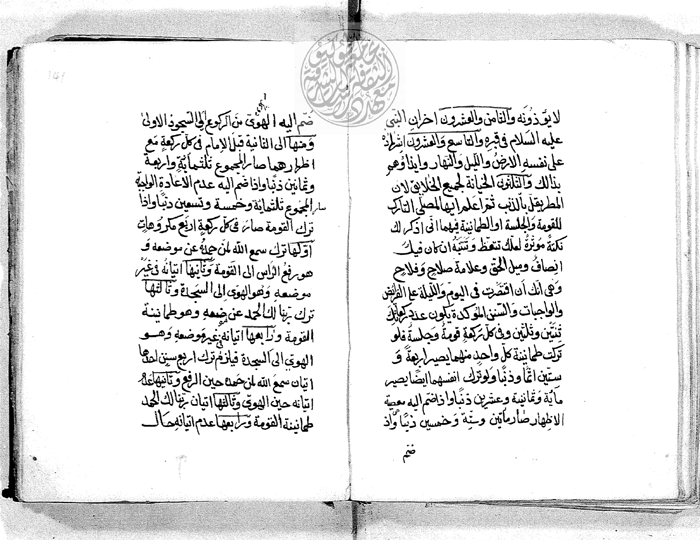 لا يؤذونه والثامن والعشرون احزان النبي
عليه السلام في قبره والتاسع والعشرون اشهاده
على نفسه الارض والليل والنهار وايذاوهم
بذالك والثلاثون الخيانة لجميع الخلايق لان
المطر يقل بالذنب ثم اعلم ايها المصلي التارك
للقومة والجلسة او الطمانينة فيهما اني اذكر لك
نكتة موثرة لعلك تتعظ وتنتبه ان كان فيك
انصاف وميل الحق وعلامة صلاح وفلاح
وهي انك ان اقتصرت في اليوم والليلة على الفرايض
والواجبات والسنن الموكدة يكون عدد ركعاتك
ثنتين وثلثين وفي كل ركعة قومة وجلسة فلو
تركت طمانينة كل واحد منهما يصير اربعة و
ستين اثما وذنبا ولو تركت انفسهما ايضا يصير
ماية وثمانية وعشرين ذنبا واذا ضم اليه معصية
الاظهار صار ماتين وستة وخمسين ذنبا واذ
ضم
ضم اليه الهوي من الركوع الى السجود الاولى
ومنها الى الثانية قبل الامام في كل ركعة مع
اظهارهما صار المجموع ثلثماية واربعة
وثمانين ذنبا واذا ضم اليه عدم الاعادة الواجبة
صار المجموع ثلثماية وخمسة وتسعين ذنبا واذا
ترك القومة صار في كل ركعة اربع مكروهات
اولها ترك سمع الله لمن حمده عن موضعه و
هو رفع الراس الى القومة وثانيها اتيانه في غير
موضعه وهو الهوي الى السجدة وثالثها
ترك ربنا لك الحمد عن موضعه وهو طمانينة
القومة ورابعها اتيانه في غير موضعه وهو
الهوي الى السجدة فيلزم ترك اربع سنن احدها
اتيان سمع الله لمن حمده حين الرفع وثانيها عدم
اتيانه حين الهوي وثالثها اتيان ربنا لك الحمد
طمانينة القومة ورابعها عدم اتيانه حال